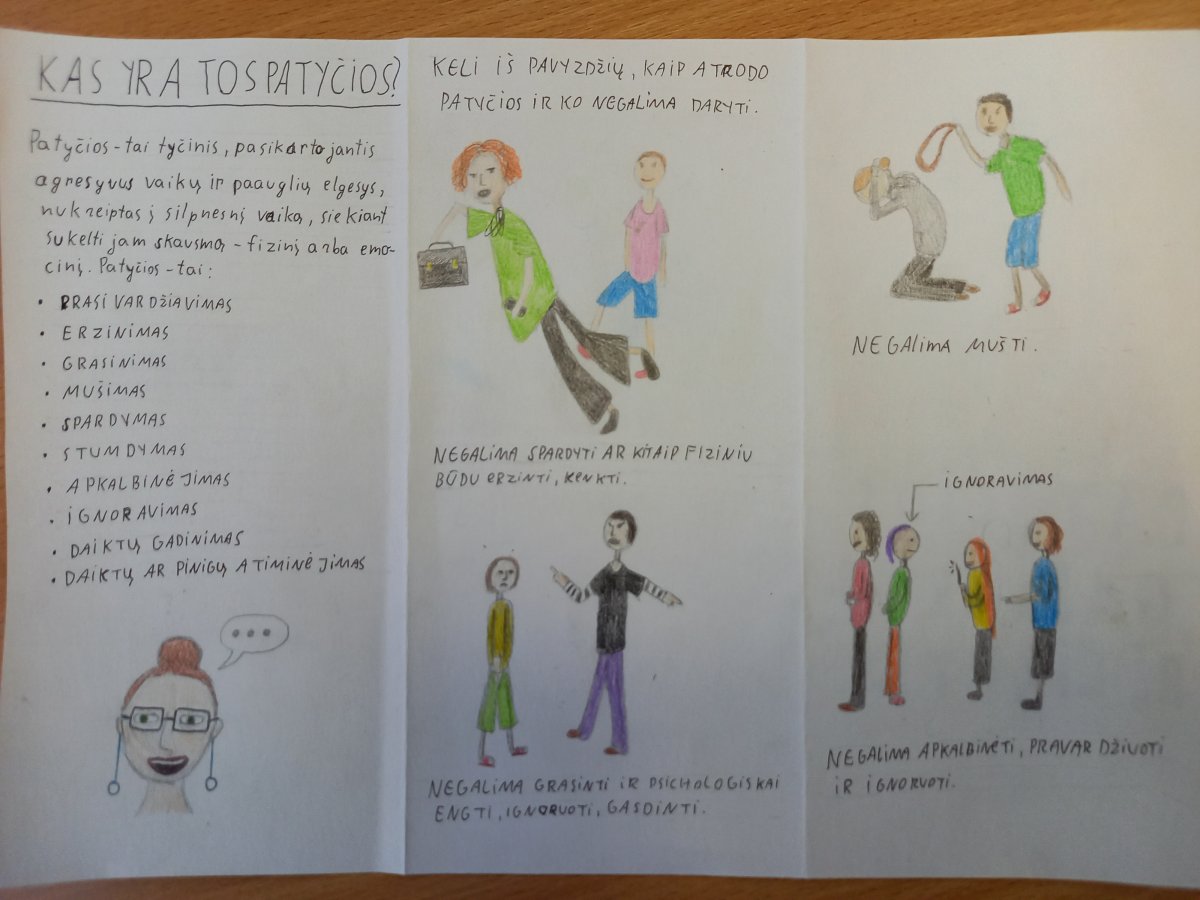 KAS YRA TOS PATYČIOS?
Patyčios - tai tyčinis, pasikartojantis
agresyvus vaikų ir paauglių elgesys,
nukreiptas į silpnesnį vaiką, siekiant
sukelti jam skausmą - fizinį arba emo-
cinį. Patyčios - tai:
• PRASIVARDŽIAVIMAS
• ERZINIMAS
• GRASINIMAS
• MUŠIMAS
• SPARDYMAS
• STUMDYMAS
• APKALBINĖJIMAS
• IGNORAVIMAS
• DAIKTŲ GADINIMAS
• DAIKTŲ AR PINIGŲ ATIMINĖJIMAS
KELI IŠ PAVYZDŽIŲ, KAIP ATRODO
PATYČIOS IR KO NEGALIMA DARYTI.
NEGALIMA SPARDYTI AR KITAIP FIZINIU
BŪDU ERZINTI, KENKTI.
NEGALIMA GRASINTI IR PSICHOLOGISKAI
ENGTI, IGNORUOTI, GASDINTI.
NEGALIMA MUŠTI.
IGNORAVIMAS
NEGALIMA APKALBINĖTI, PRAVARDŽIUOTI
IR IGNORUOTI.